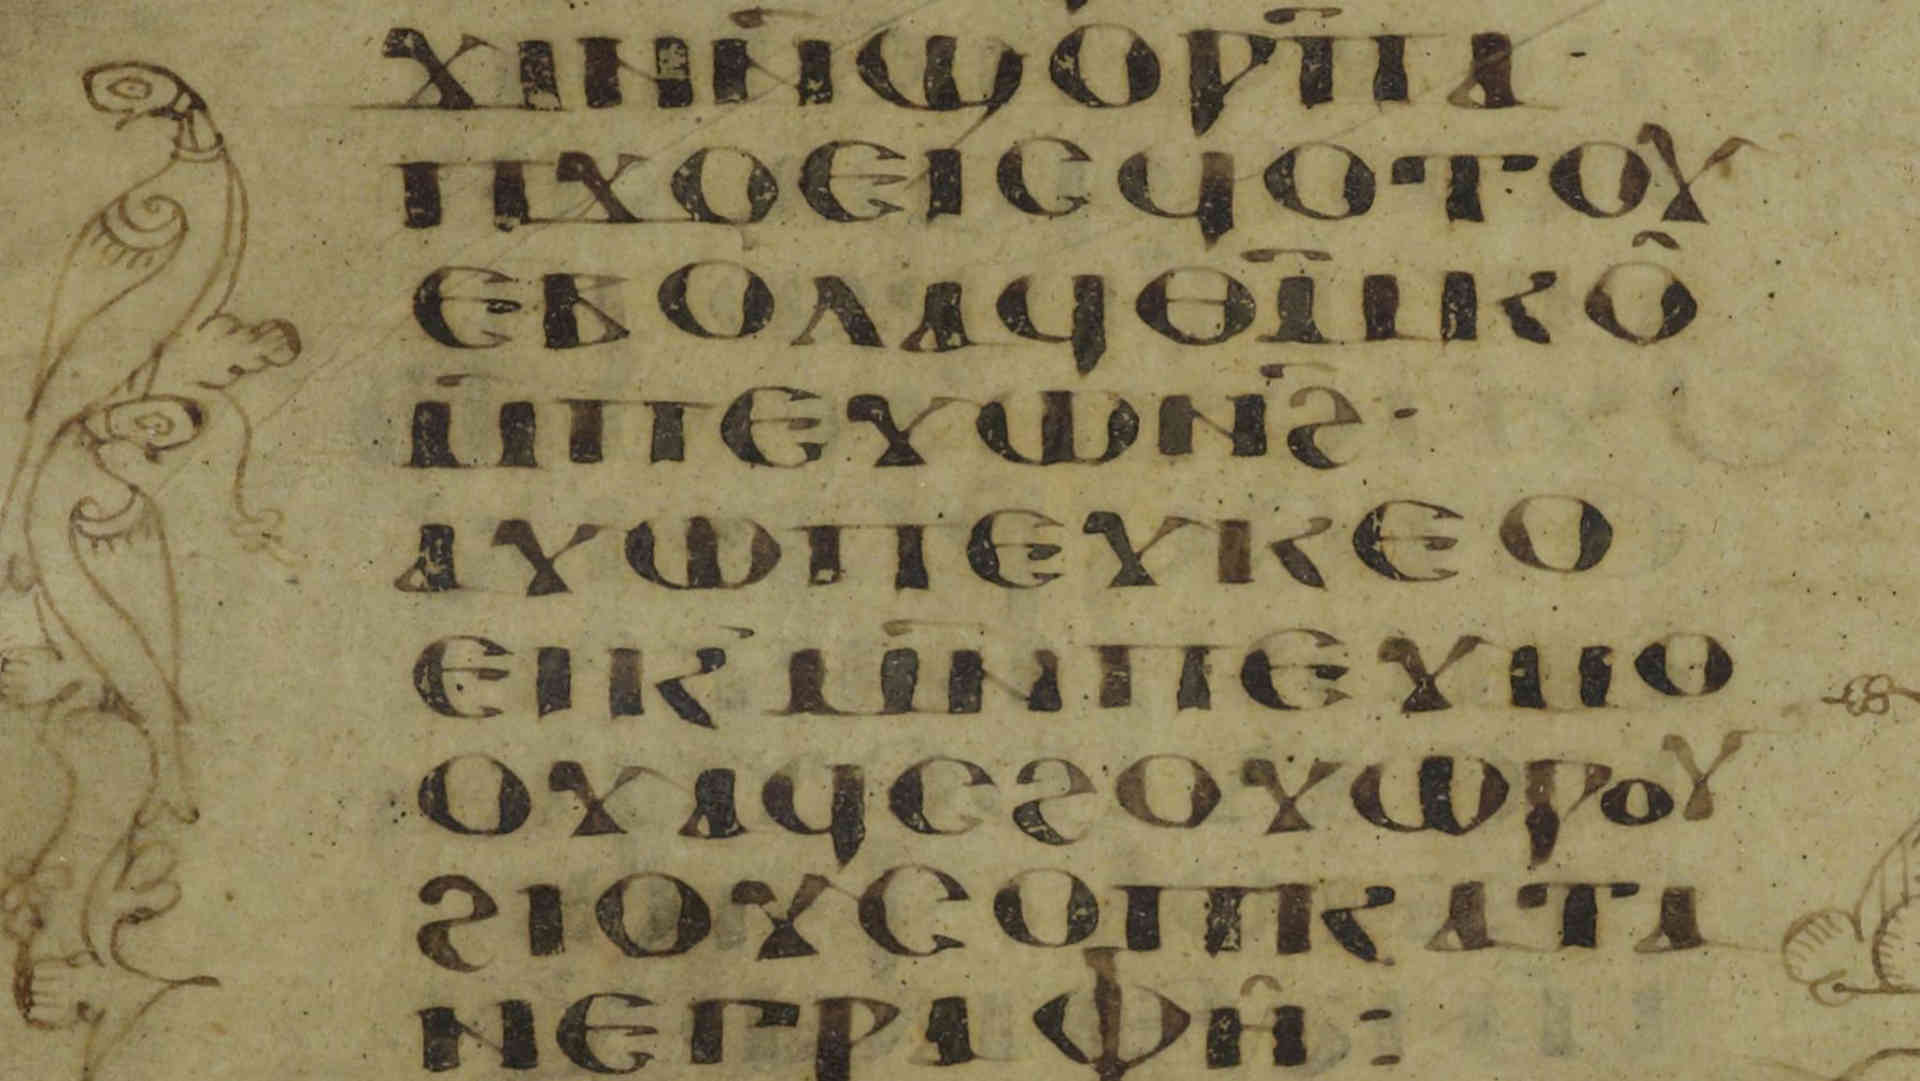 ϫⲓⲛⲛ̄ϣⲟⲣⲡ̄ⲁ·
ⲡϫⲟⲉⲓⲥϥⲟⲧⲟⲩ
ⲉⲃⲟⲗⲁϥⲑⲙ̄ⲕⲟ̂
ⲙ̄ⲡⲉⲩⲱⲛϩ̄·
ⲁⲩⲱⲡⲉⲩⲕⲉⲟ
ⲉⲓⲕ̄ⲙⲛ̄ⲡⲉⲩⲙⲟ
ⲟⲩⲁϥⲥϩⲟⲩⲱⲣⲟⲩ
ϩⲓⲟⲩⲥⲟⲡⲕⲁⲧⲁ
ⲛⲉⲅⲣⲁⲫⲏ̂: